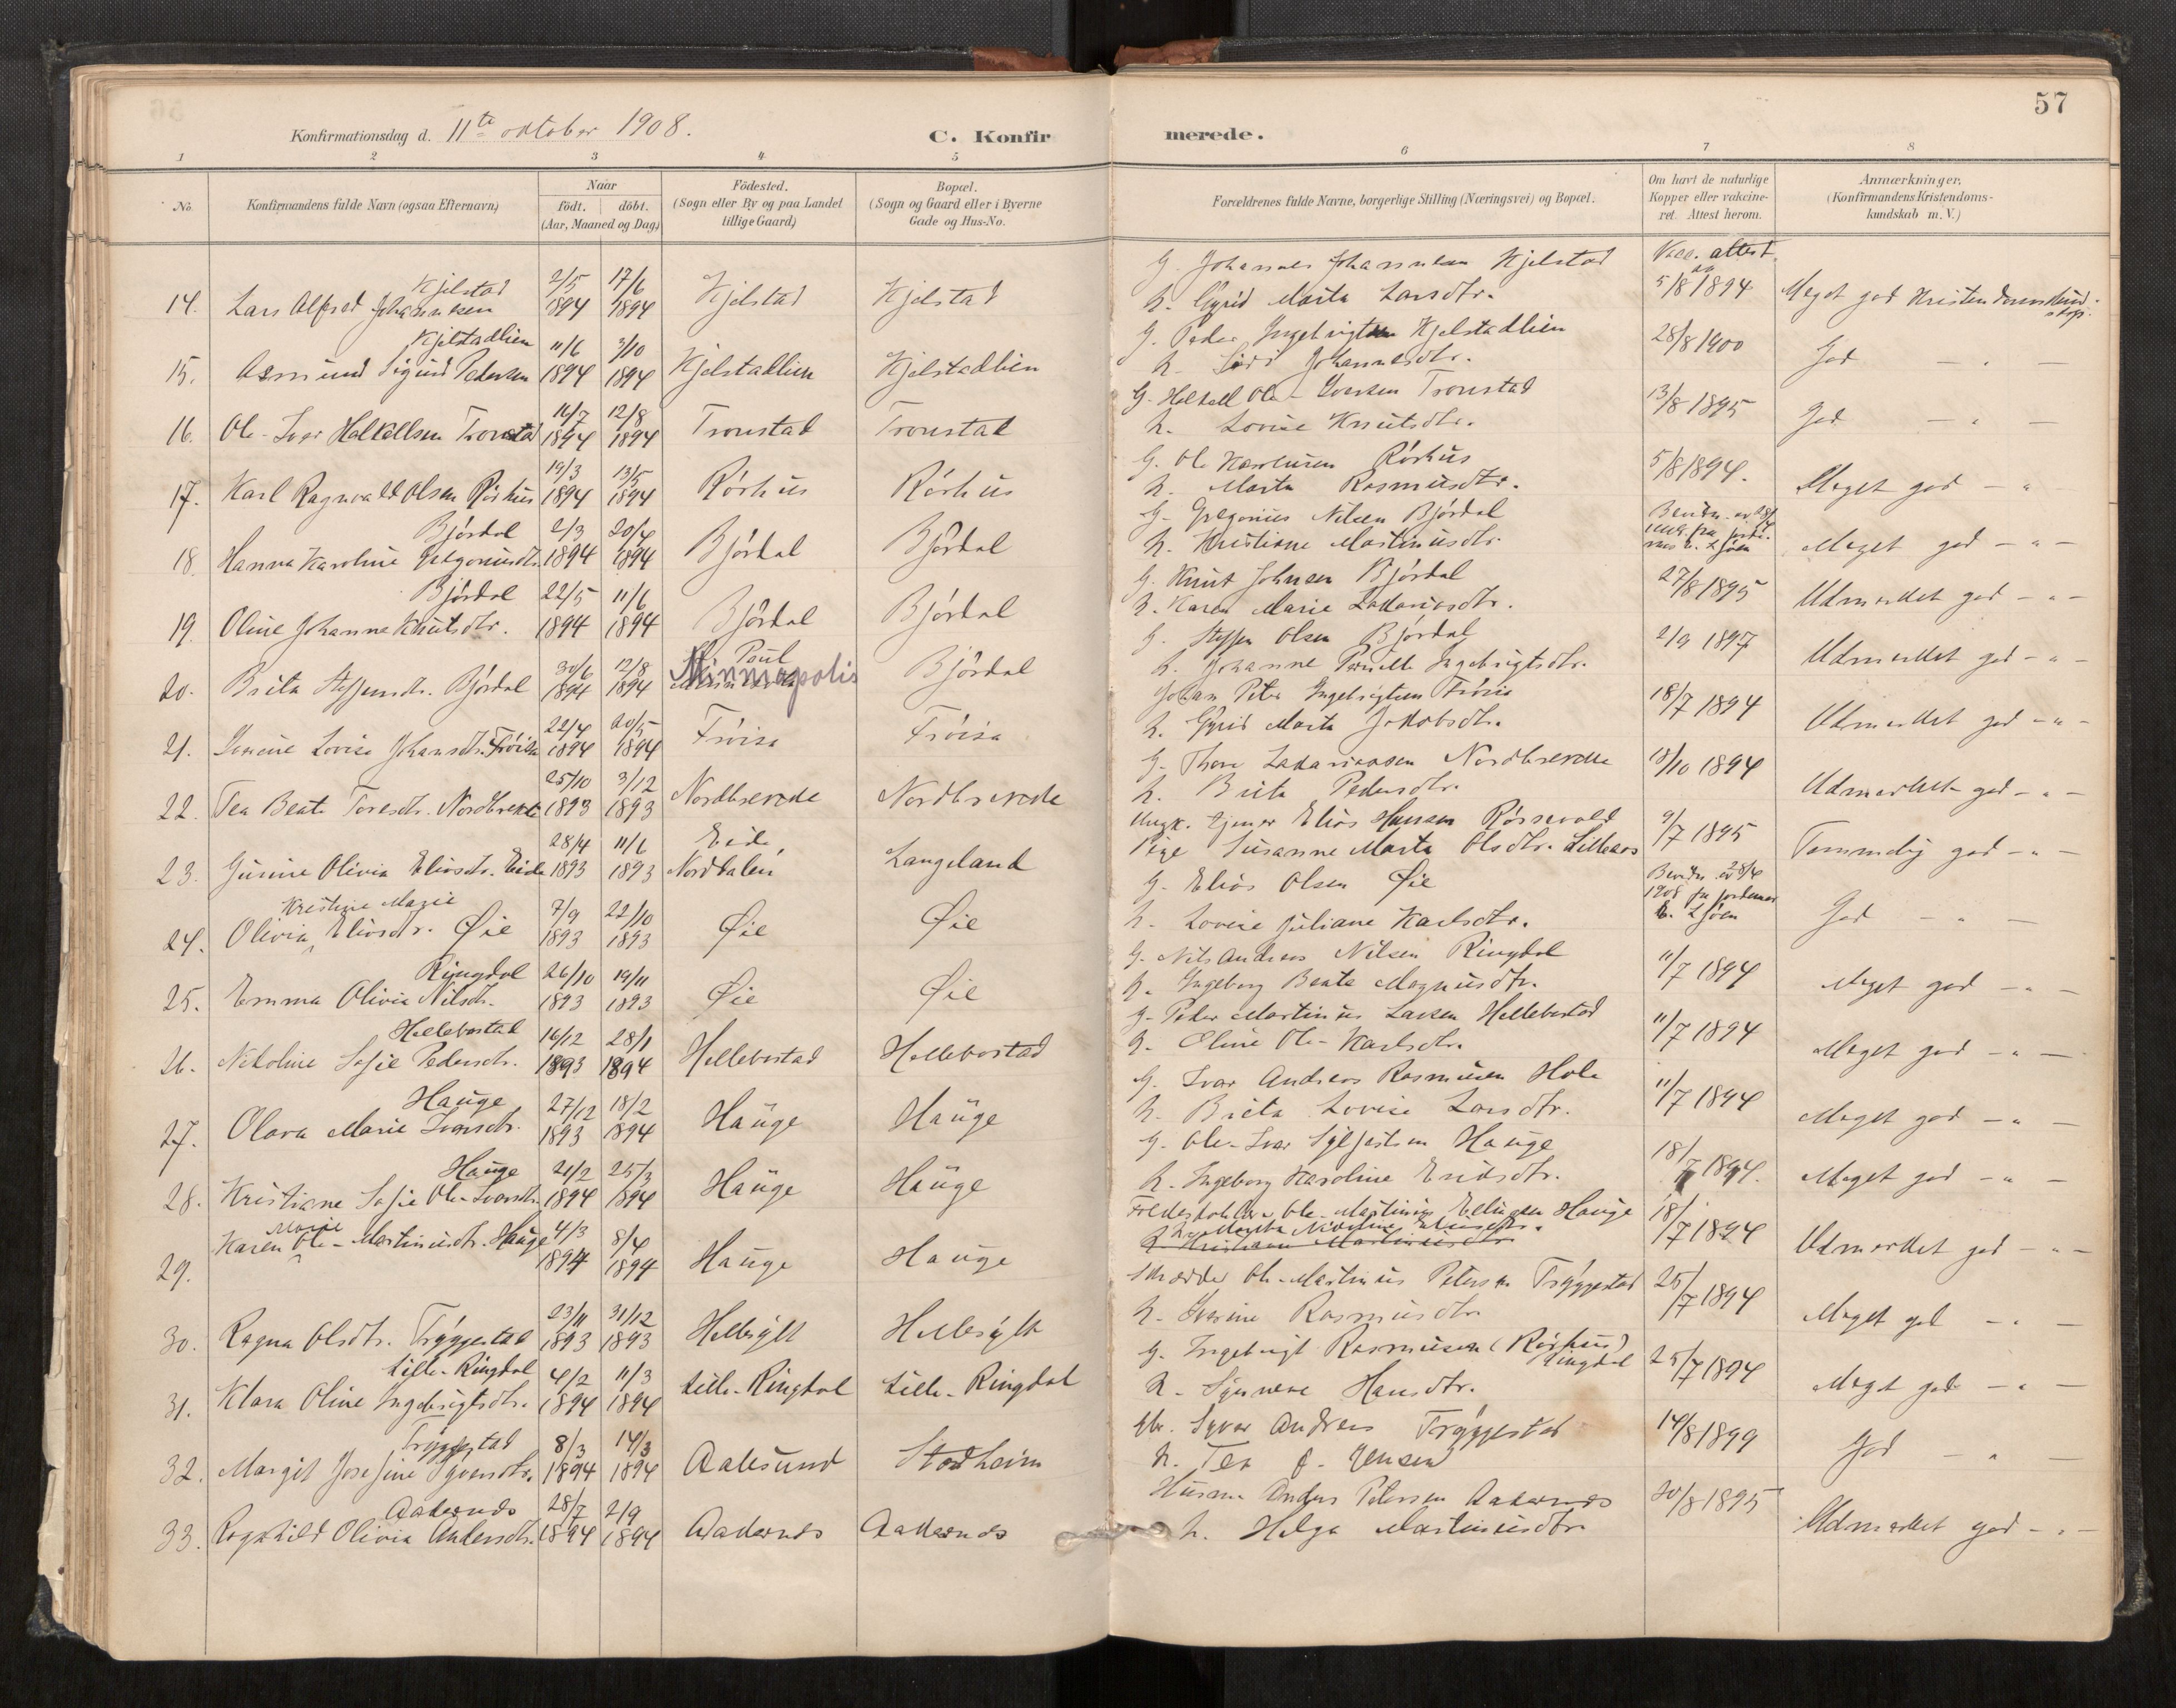 57
Konfirmationsdag d. 11te oktober 1908.
C. Konfirmerede.
1 2 3 4 5 6 7 8
No.
Konfirmandens fulde Navn (ogsaa Efternavn)
Naar
födt. döbt.
(Aar, Maaned og Dag)
Födested.
(Sogn eller By og paa Landet
tillige Gaard)
Bopæl.
(Sogn og Gaard eller i Byerne
Gade og Hus-No.
Forældrenes fulde Navne, borgerlige Stilling (Næringsvei) og Bopæl.
Om havt de naturlige
Kopper eller vakcine-
ret. Attest herom.
Anmærkninger.
(Konfirmandens Kristendoms-
kundskab m.V.)
14. Lars Alfred Johannesen Kjelstad 2/5 1894 17/6 1894 Kjelstad Kjelstad
G. Johannes Johannesen Kjelstad
h. Gyrid Marta Larsdtr.
Vacc. attest
5/8 1894 Meget god Kristendomskundskap.
15. Asmund Sigurd Pedersen Kjelstadlien 11/6 1894 3/10 1894 Kjelstadlien Kjelstadlien
G. Peder Ingebrigtsen Kjelstadlien
h. Johannesdtr.
28/8 1900 God — " —
16. Ole-Iver Halkellsen Tronstad 16/7 1894 12/8 1894 Tronstad Tronstad
G. Halkell Ole-Iversen Tronstad
h. Lovise Knutsdtr.
13/8 1895 God — " —
17. Karl Ragnvald Olsen Rørhus 19/3 1894 13/5 1894 Rørhus Rørhus
G. Ole Rørhus
h. Marta Rasmusdtr.
5/8 1894. Meget god — "
18. Hanna Karoline Gregoriusdtr. Bjørdal 2/3 1894 20/4 1894 Bjørdal Bjørdal
G. Gregorius Nilsen Bjørdal
h. Kristiane Martinusdtr.
Meget god — " —
19. Oline Johanne Knutsdtr. Bjørdal 22/5 1894 11/6 1894 Bjørdal Bjørdal
G. Knut Johnsen Bjørdal
h. Karen Marie Zakariasdtr.
27/8 1895 Udmerket god — " —
20. Brita Steffensdtr. Bjørdal 30/6 1894 12/8 1894 Minniapolis Bjørdal
G. Steffen Olsen Bjørdal
h. Johanne Pernelle Ingebrigtsdtr.
2/9 1897 Udmerket god — " —
21. Lovise Johansdtr. Frøisa 22/4 1894 20/5 1894 Frøisa Frøisa
Johan Peter Ingebrigtsen Frøisa
h. Gyrid Marta Jakobsdtr.
18/7 1894 Udmerket god — " —
22. Tea Beate Toresdtr. Nordbrevde 25/10 1893 3/12 1893 Nordbrevde Nordbrevde
G. Thore Zakariassen Nordbrevde
h. Brita Pedersdtr.
18/10 1894 Udmerket god — " —
23. Gurine Olivia Eliasdtr. Eide 28/4 1893 11/6 1893 Eide, Nordfalen Langeland
Ungk. Elias Hansen Røssevold
Pige Susanne Marta Olsdtr. Lillebø
9/7 1895 Temmelig god — " —
24. Olivia Kristine Marie Eliasdtr. Øie 7/9 1893 22/10 1893 Øie Øie
G. Elias Olsen Øie
h. Lovise Juliane Karlsdtr.
God — " —
25. Emma Olivia Nilsdtr. Ringdal 26/10 1893 19/11 1893 Øie Øie
G. Nils Andreas Nilsen Ringdal
h. Ingeborg Beate Magnusdtr.
11/7 1894 Meget god — " —
26. Nikoline Sofie Pedersdtr. Hellebostad 16/12 1893 28/1 1894 Hellebostad Hellebostad
G. Peder Martinus Larsen Hellebostad
h. Eline Ole-Karlsdtr.
11/7 1894 Meget god — " —
27. Olava Marie Ivarsdtr. Hauge 27/12 1893 18/2 1894 Hauge Hauge
G. Ivar Andreas Rasmussen Hole
h. Brita Lovise Larsdtr.
11/7 1894 Meget god — " —
28. Kristiane Sofie Ole-Ivarsdtr. Hauge 21/2 1894 25/3 1894 Hauge Hauge
G. Ole-Ivar Sylfestsen Hauge
h. Ingeborg Karoline Eriksdtr.
18/7 1894. Meget god — " —
29. Karen Marie Ole-Martinusdtr. Hauge 4/3 1894 8/4 1894 Hauge Hauge
Ole-Martinus Hauge
18/7 1894 Udmerket god — " —
30. Ragna Olsdtr. Tryggestad 23/11 1893 31/12 1893 Hellesylt Hellesylt
Skrædder Ole-Martinus Petersen Tryggestad
h. Iverine Rasmusdtr.
25/7 1894 Meget god — " —
31. Klara Oline Ingebrigtsdtr. Lille-Ringdal 4/2 1894 11/3 1894 Lille-Ringdal Lille-Ringdal
G. Ingebrigt Rasmussen (Rørhus) Ringdal
h. Synneve Hansdtr.
25/7 1894 Meget god — " —
32. Margit Josefine Syversdtr. Tryggestad 8/3 1894 14/3 1894 Aalesund Stadheim
Syver Andreas Tryggestad
h. Tea J. Jensen
14/8 1899 God — " —
33. Ragnhild Olivia Andersdtr. Aakernes 28/7 1894 2/9 1894 Aakernes Aakernes
Husm. Anders Petersen Aakernes
h. Helga Martinusdtr.
20/8 1895 Udmerket god — " —